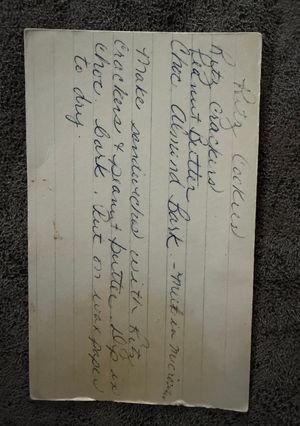 Ritz Cookies
Ritz Crackers
Peanut Butter
Choc Almond Bark - melt in micro
Make sandwiches with Ritz
Crackers & peanut butter Dip in
choc bark. Put on wax paper
to dry.